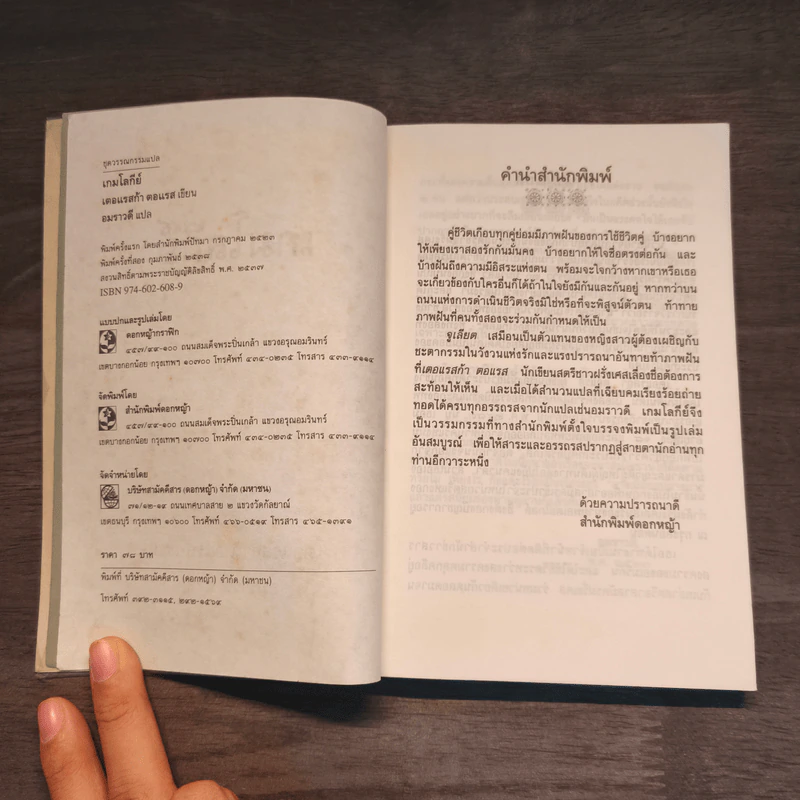 ชุดวรรณกรรมแปล
เกมโลกีย์
เตอแรสก้า ตอแรส เขียน
อมราวดี แปล
พิมพ์ครั้งแรก โดยสำนักพิมพ์ปัทมา กรกฎาคม ๒๕๒๓
พิมพ์ครั้งที่สอง กุมภาพันธ์ ๒๕๓๘
สงวนสิทธิ์ตามพระราชบัญญัติลิขสิทธิ์ พ.ศ. ๒๕๓๗
ISBN 974-602-608-9
แบบปกและรูปเล่มโดย
ดอกหญ้ากราฟิก
๔๕๗/๙๙-๑๐๐ ถนนสมเด็จพระปิ่นเกล้า แขวงอรุณอมรินทร์
เขตบางกอกน้อย กรุงเทพฯ ๑๐๗๐๐ โทรศัพท์ ๔๓๔-๐๒๓๕ โทรสาร ๔๓๓-๙๑๑๔
จัดพิมพ์โดย
สำนักพิมพ์ดอกหญ้า
๔๕๗/๙๙-๑๐๐ ถนนสมเด็จพระปิ่นเกล้า แขวงอรุณอมรินทร์
เขตบางกอกน้อย กรุงเทพฯ ๑๐๗๐๐ โทรศัพท์ ๔๓๔-๐๒๓๕ โทรสาร ๔๓๓-๙๑๑๔
จัดจำหน่ายโดย
บริษัทสามัคคีสาร (ดอกหญ้า) จำกัด (มหาชน)
๗๑/๑๒-๑๙ ถนนเทศบาลสาย ๒ แขวงวัดกัลยาณ์
เขตธนบุรี กรุงเทพฯ ๑๐๖๐๐ โทรศัพท์ ๔๖๖-๐๕๑๙ โทรสาร ๔๖๕-๑๓๙๑
ราคา ๗๘ บาท
พิมพ์ที่ บริษัทสามัคคีสาร (ดอกหญ้า) จำกัด (มหาชน)
โทรศัพท์ ๓๙๒-๓๑๑๕, ๒๙๒-๑๕๖๙
คำนำสำนักพิมพ์
คู่ชีวิตเกือบทุกคู่ย่อมมีภาพฝันของการใช้ชีวิตคู่ บ้างอยาก
ให้เพียงเราสองรักกันมั่นคง บ้างอยากให้ใจซื่อตรงต่อกัน และ
บ้างฝันถึงความมีอิสระแห่งตน พร้อมจะใจกว้างหากเขาหรือเธอ
จะเกี่ยวข้องกับใครอื่นก็ได้ถ้าในใจยังมีกันและกันอยู่ หากทว่าบน
ถนนแห่งการดำเนินชีวิตจริงมิใช่หรือที่จะพิสูจน์ตัวตน ท้าทาย
ภาพฝันที่คนทั้งสองจะร่วมกันกำหนดให้เป็น
จูเลียต เสมือนเป็นตัวแทนของหญิงสาวผู้ต้องเผชิญกับ
ชะตากรรมในวังวนแห่งรักและแรงปรารถนาอันทายท้าภาพฝัน
ที่เตอแรสก้า ตอแรส นักเขียนสตรีชาวฝรั่งเศสเลื่องชื่อต้องการ
สะท้อนให้เห็น และเมื่อได้สำนวนแปลที่เฉียบคมเรียงร้อยถ่าย
ทอดได้ครบทุกอรรถรสจากนักแปลเช่นอมราวดี เกมโลกีย์จึง
เป็นวรรมกรรมที่ทางสำนักพิมพ์ตั้งใจบรรจงพิมพ์เป็นรูปเล่ม
อันสมบูรณ์ เพื่อให้สาระและอรรถรสปรากฏสู่สายตานักอ่านทุก
ท่านอีกวาระหนึ่ง
ด้วยความปรารถนาดี
สำนักพิมพ์ดอกหญ้า